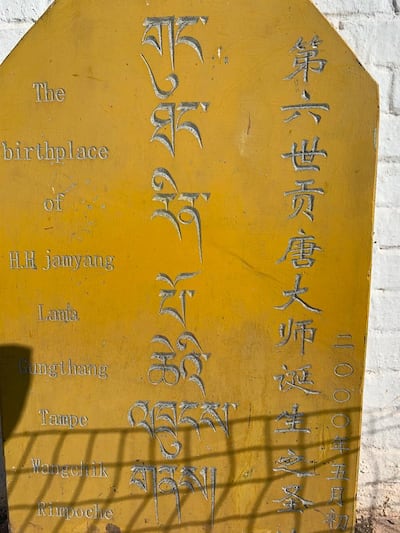 The
birthplace
of
H.H jamyang
Lamja
Gungthang
Tampe
Wangchik
Rinpoche
གུང་
ཐང་
རིན་
པོ་
ཆེའི་
འཁྲུངས་
གནས།
第六世贡唐大师诞生之圣
二〇〇〇年五月初